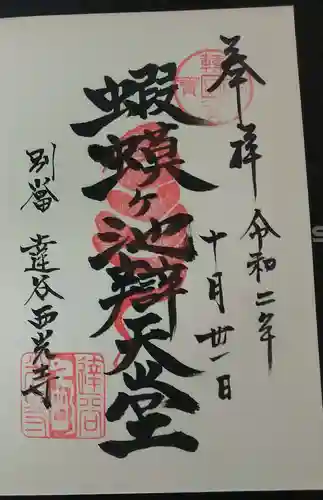 奉拝
令和二年
十月卅一日
蝦蟆ヶ池辯天堂
別當 達谷西光寺